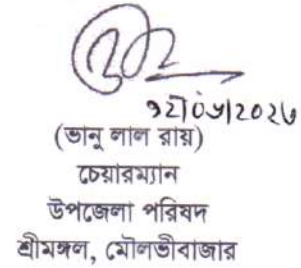 (ভানু লাল রায়)
চেয়ারম্যান
উপজেলা পরিষদ
শ্রীমঙ্গল, মৌলভীবাজার